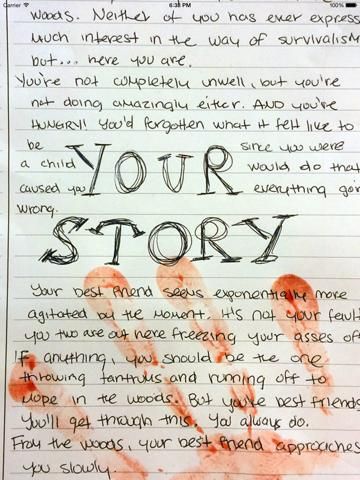 Carrier
6:38 PM
100%
woods. Neither of you has ever express
much interest in the way of survivalism
but... here you are.
You're not completely unwell, but you're
not doing amazingly either. AND you're
HUNGRY! You'd forgotten what it felt like to
be since you were
a child would do that
caused you everything goi
wrong.
YOUR
STORY
Your best friend seems exponentially more
agitated by the moment. It's not your faul
you two are out here freezing your asses off
If anything, you should be the one
throwing tantrums and running off to
mope in the woods. But you're best friends
You'll get through this. You always do.
From the woods, your best friend approaches
you slowly.